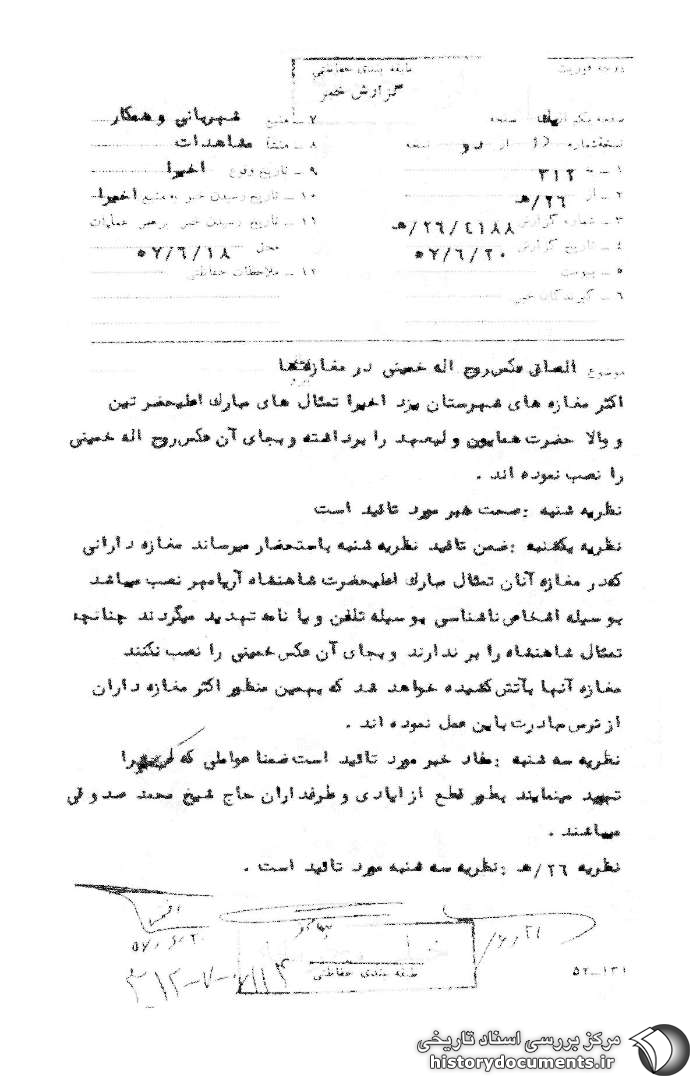 درجه فوریت
طبقه بندی حفاظتی
گزارش خبر
صفحه یک از صفحه
نسخه شماره از دو نسخه
۱ ــ به ۳۱۲
۲ ــ از ۲۶/هـ
۳ ــ شماره گزارش ۲۶/۴۱۸۸/هـ
۴ ــ تاریخ گزارش ۵۷/۶/۲۰
۵ ــ پیوست
۶ ــ گیرندگان خبر
۷ ــ منبع شهربانی و همکار
۸ ــ منشأ مشاهدات
۹ ــ تاریخ وقوع اخیرا
۱۰ ــ تاریخ رسیدن خبر به منبع اخیرا
۱۱ ــ تاریخ رسیدن خبر برهبر عملیات
محل ۵۷/۶/۱۸
۱۲ ــ ملاحظات حفاظتی
موضوع الصاق عکس روح اله خمینی در مغازه ها
اکثر مغازه های شهرستان یزد اخیرا تمثال های مبارك اعلیحضرتین
و والا حضرت همایون ولیعهد را برداشته و بجای آن عکس روح اله خمینی
را نصب نموده اند .
نظریه شنبه : صحت خبر مورد تائید است
نظریه یکشنبه : ضمن تائید نظریه شنبه باستحضار میرساند مغازه دارانی
که در مغازه آنان تمثال مبارك اعلیحضرت شاهنشاه آریامهر نصب میباشد
بوسیله اشخاص ناشناسی بوسیله تلفن و یا نامه تهدید میگردند چنانچه
تمثال شاهنشاه را بر ندارند و بجای آن عکس خمینی را نصب نکنند
مغازه آنها بآتش کشیده خواهد شد که بهمین منظور اکثر مغازه داران
از ترس مبادرت باین عمل نموده اند .
نظریه سه شنبه : مفاد خبر مورد تائید است ضمنا عواملی که را
تهدید مینمایند بطور قطع از ایادی و طرفداران حاج شیخ محمد صدوقی
میباشند .
نظریه ۲۶/هـ : نظریه سه شنبه مورد تائید است .
۵۷/۶/۲۰
۶/۲۱
طبقه بندی حفاظتی
۵۲-۱۳۱
مرکز بررسی اسناد تاریخی
historydocuments.ir